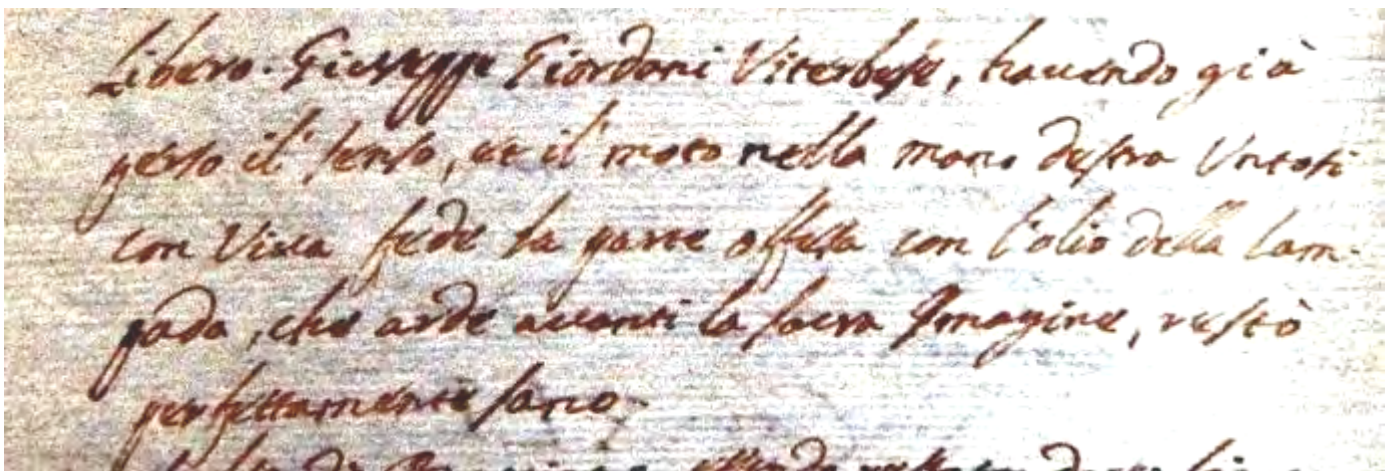 libero. Giuseppe Giordani Viterbese, hauendo già
perso il senso, et il moto nella mano destra Untosi
con Viva fede la parte offesa con l'olio della lam-
pada, che arde auanti la sacra Imagine, restò
perfettamente sano.